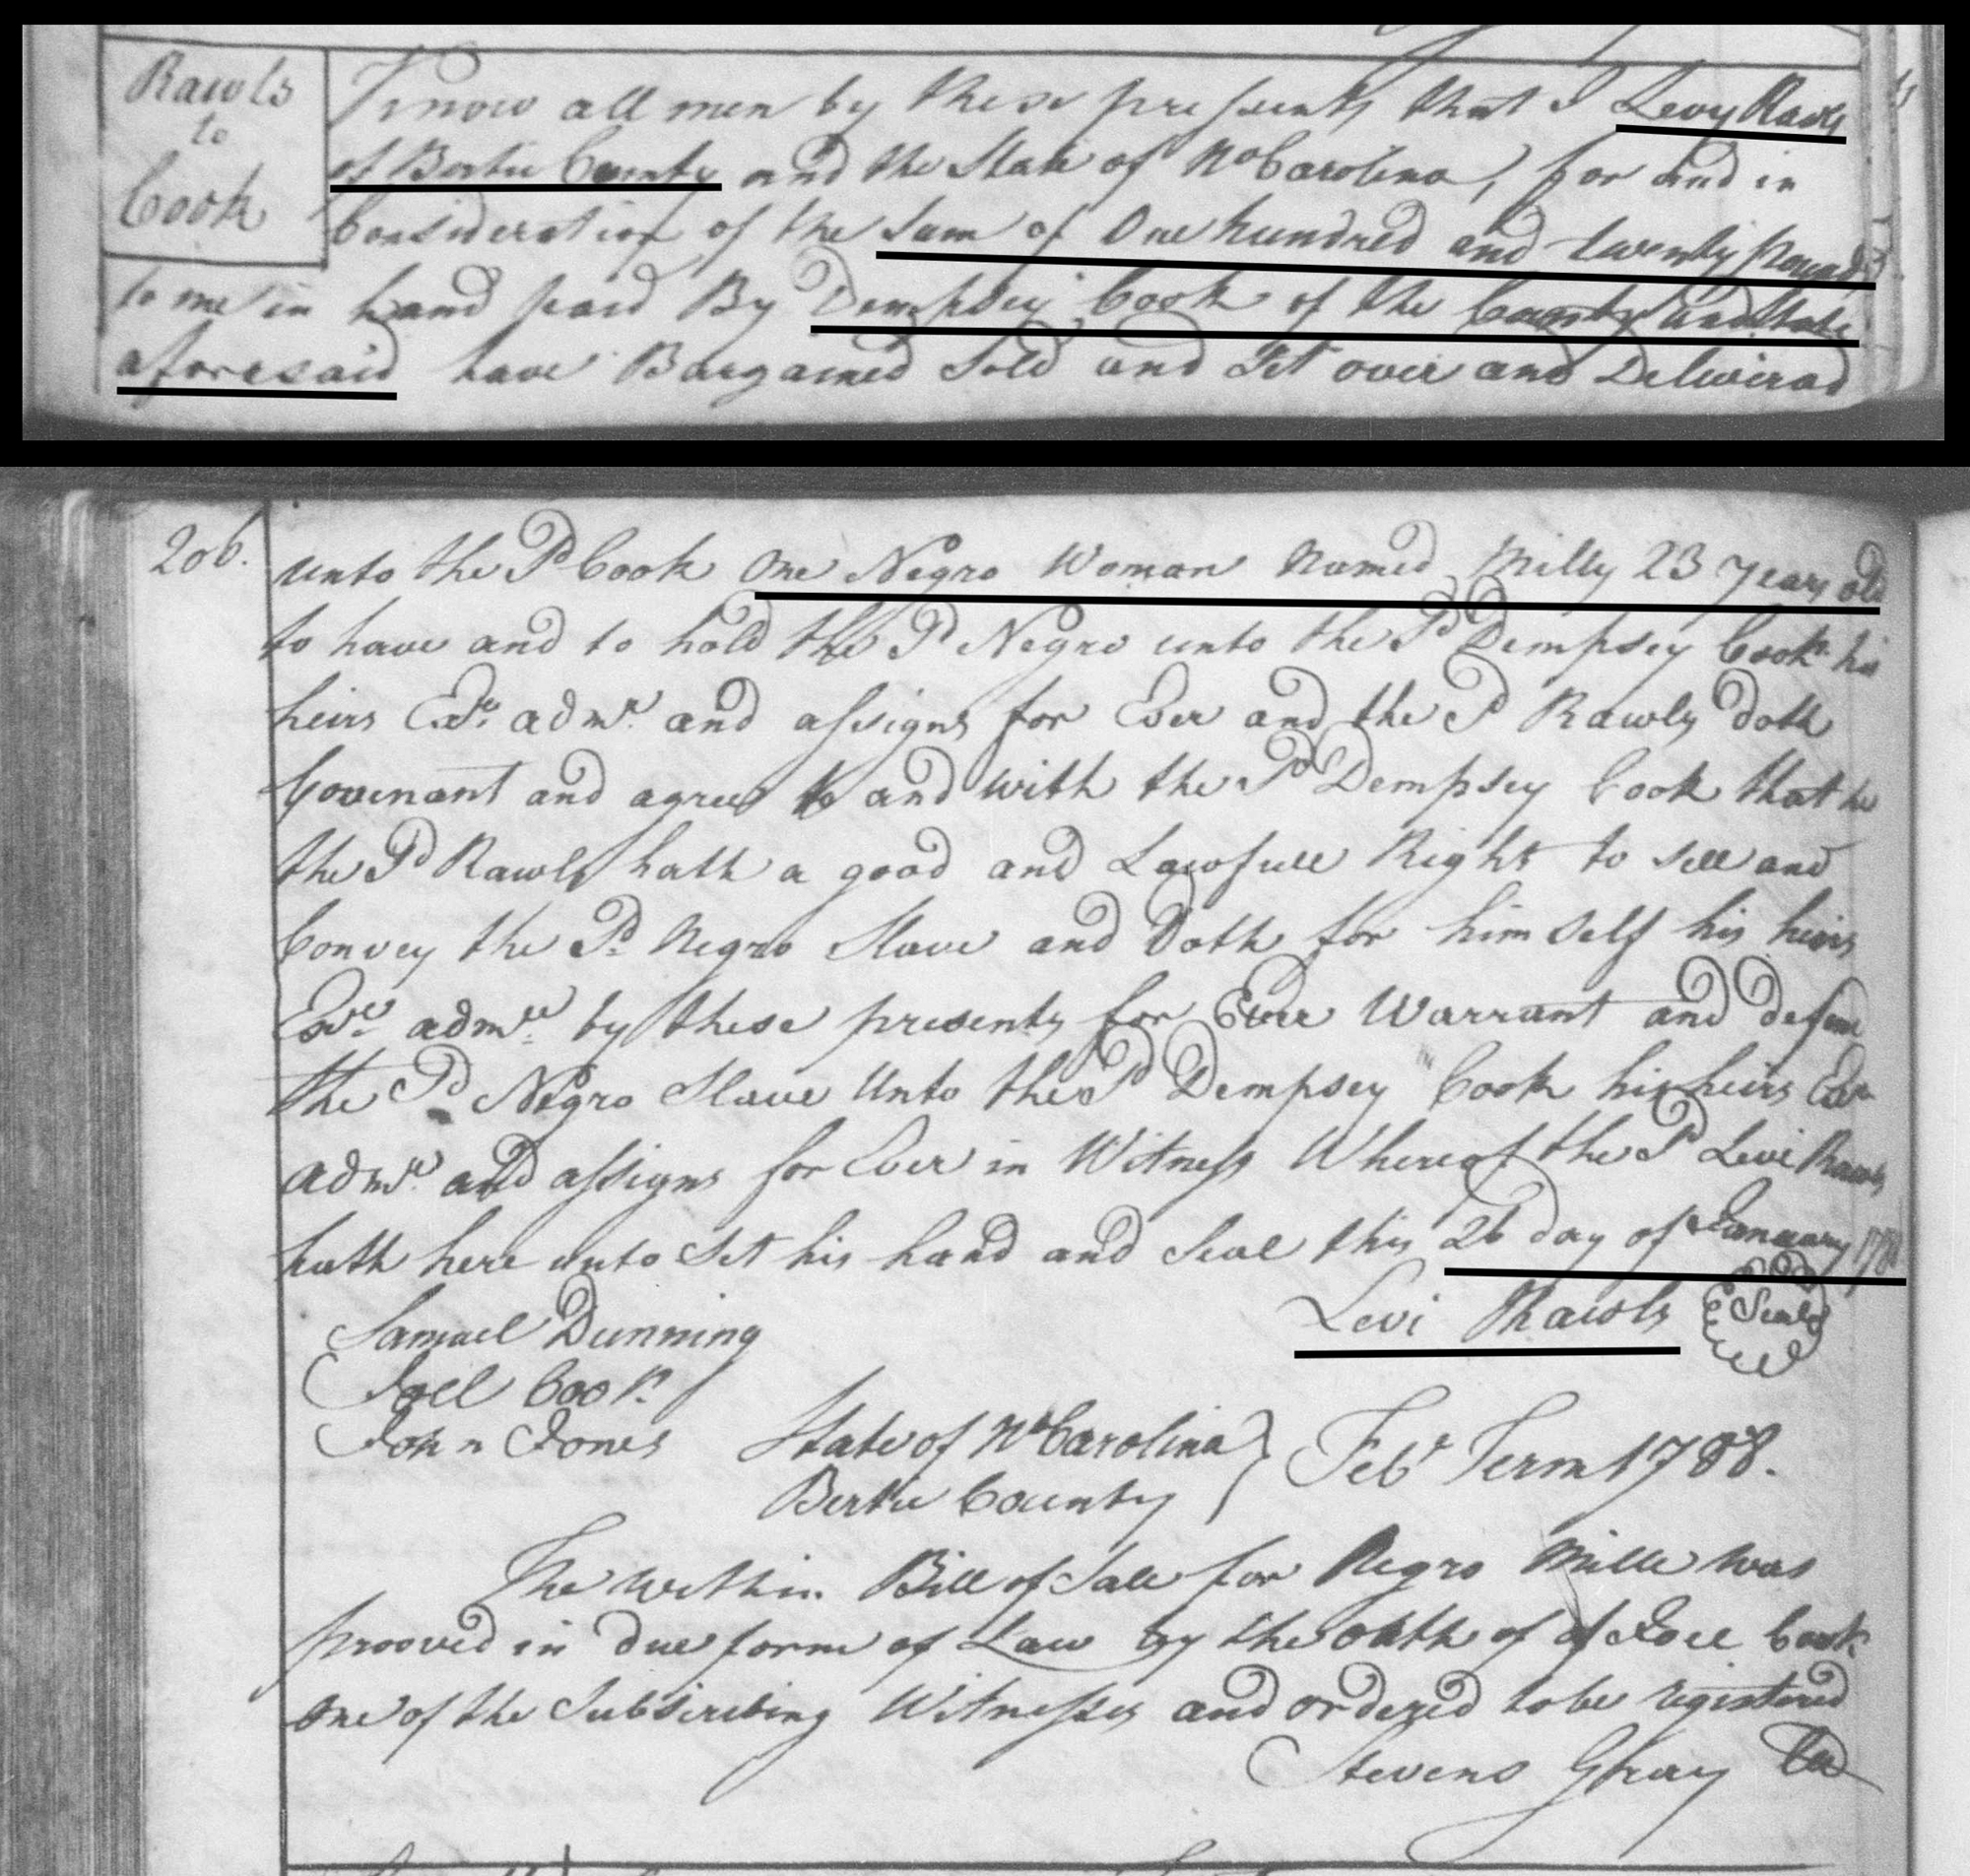 Rawls
to
Cook
Know all men by these presents that I Levy Rawls
of Bertie County and the State of No Carolina, for and in
Consideration of the Sum of One hundred and twenty pounds
to me in hand paid By Dempsey Cook of the County and State
aforesaid have Bargained Sold and Set over and Deliverad
206.
unto the Sd Cook One Negro Woman Named Milly 23 years old
to have and to hold the Sd Negro unto the Sd Dempsey Cook his
heirs Exrs admrs and assigns for Ever and the Sd Rawls doth
Covenant and agree to and with the Sd Dempsey Cook that he
the Sd Rawls hath a good and Lawfull Right to sell and
Convey the Sd Negro Slave and Doth for him Self his heirs
Exrs admrs by these presents for Ever Warrant and defend
the Sd Negro Slave Unto the Sd Dempsey Cook his heirs Exrs
admrs and assigns for Ever in Witness Whereof the Sd Levi Rawls
hath here unto Set his hand and Seal this 26 day of January 1788
Levi Rawls Seal
Samuel Dunning
Joel Cook
John Jones
State of No Carolina } Feby Term 1788.
Bertie County
The within Bill of Sale for Negro Mille was
prooved in due form of Law by the oath of of Joel Cook
one of the Subscribing Witnesses and ordered to be registered
Stevens Gray